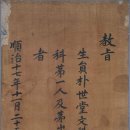 敎旨
生員朴世堂文
科第一人及第出
者
順治十七年十一月二十